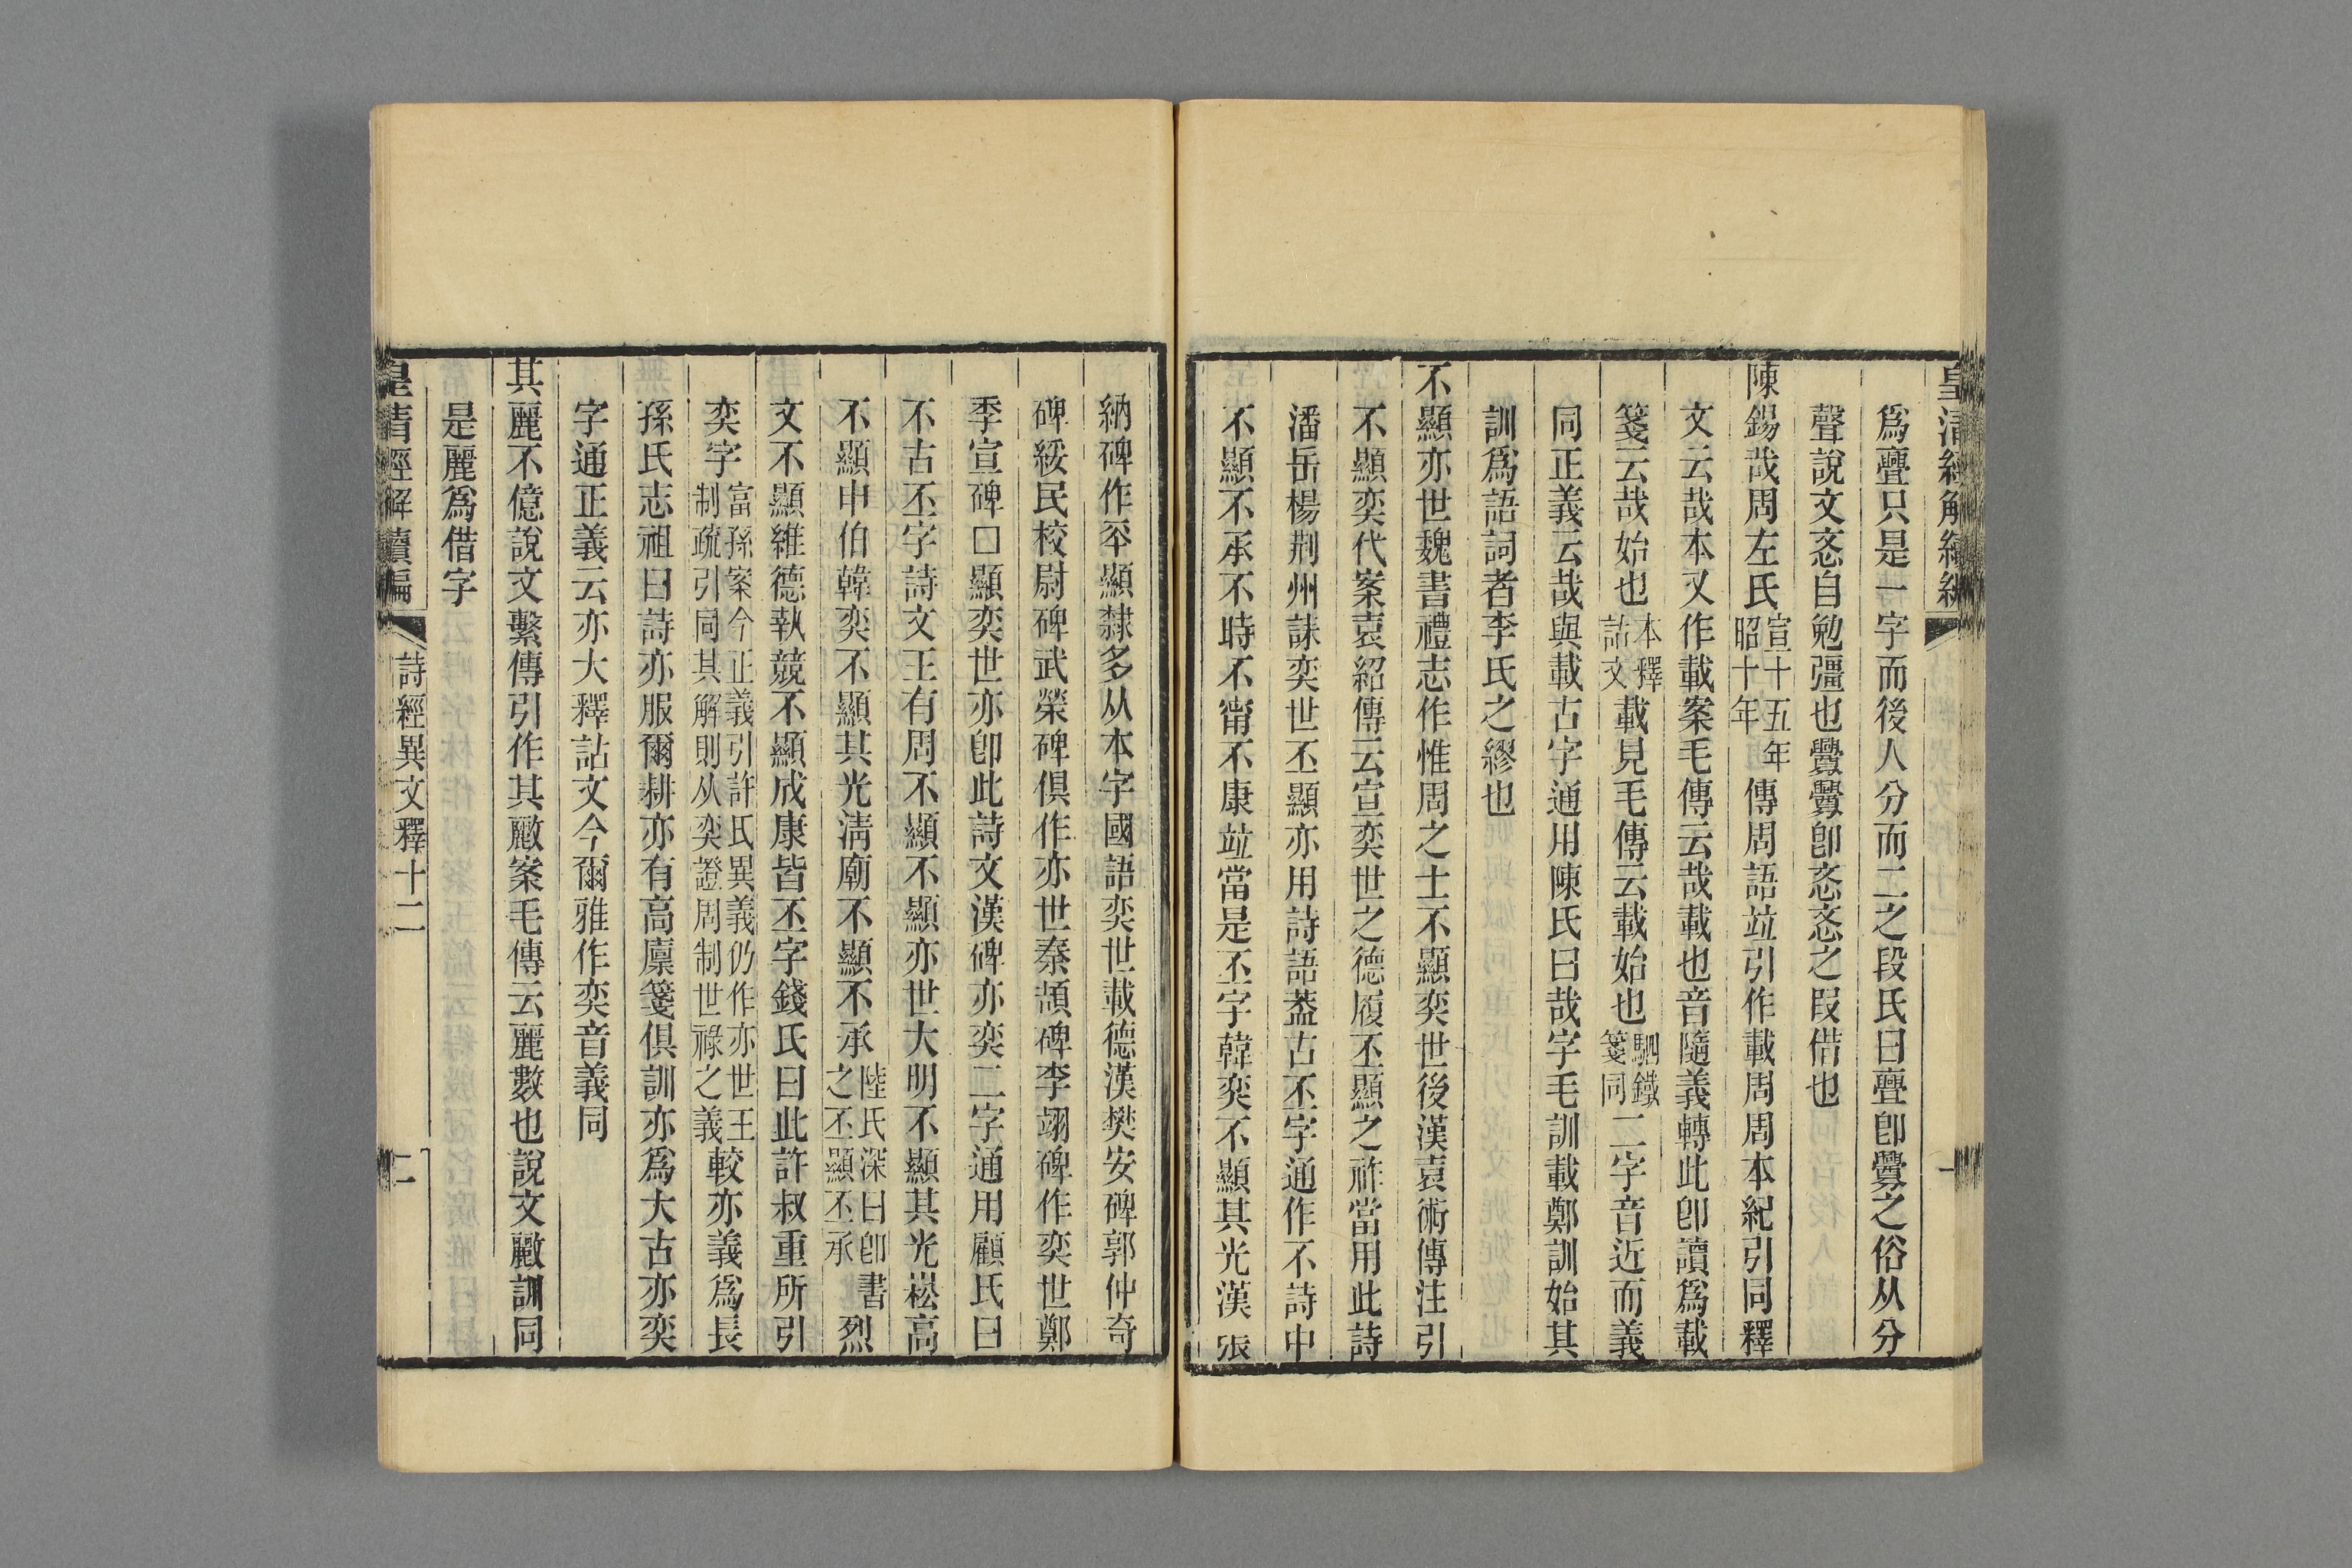 皇清經解續編
爲亹只是一字而後人分而二之段氏曰亹卽釁之俗从分
聲說文忞自勉彊也亹亹卽忞忞之叚借也
陳錫哉周左氏宣十五年昭十年傳周語竝引作載周周本紀引同釋
文云哉本又作載案毛傳云哉載也音隨義轉此卽讀爲載
箋云哉始也本釋詁文載見毛傳云載始也駟鐵箋同二字音近而義
同正義云哉與載古字通用陳氏曰哉字毛訓載鄭訓始其
訓爲語詞者李氏之繆也
不顯亦世魏書禮志作惟周之士不顯奕世後漢袁術傳注引
不顯奕代案袁紹傳云宣奕世之德履丕顯之祚當用此詩
潘岳楊荆州誄奕世丕顯亦用詩語葢古丕字通作不詩中
不顯不承不時不甯不康竝當是丕字韓奕不顯其光漢張
納碑作㔻顯隸多从本字國語奕世載德漢樊安碑郭仲奇
碑綏民校尉碑武榮碑俱作亦世秦頡碑李翊碑作奕世鄭
季宣碑□顯奕世亦卽此詩文漢碑亦奕二字通用顧氏曰
不古丕字詩文王有周不顯不顯亦世大明不顯其光崧高
不顯申伯韓奕不顯其光淸廟不顯不承陸氏深曰卽書之丕顯丕承烈
文不顯維德執競不顯成康皆丕字錢氏曰此許叔重所引
奕字富孫案今正義引許氏異義仍作亦世王制疏引同其解則从奕證周制世祿之義較亦義爲長
孫氏志祖曰詩亦服爾耕亦有高廩箋俱訓亦爲大古亦奕
字通正義云亦大釋詁文今爾雅作奕音義同
其麗不億說文繫傳引作其䴡案毛傳云麗數也說文䴡訓同
是麗爲借字
皇清經解續編
詩經異文釋十二
二